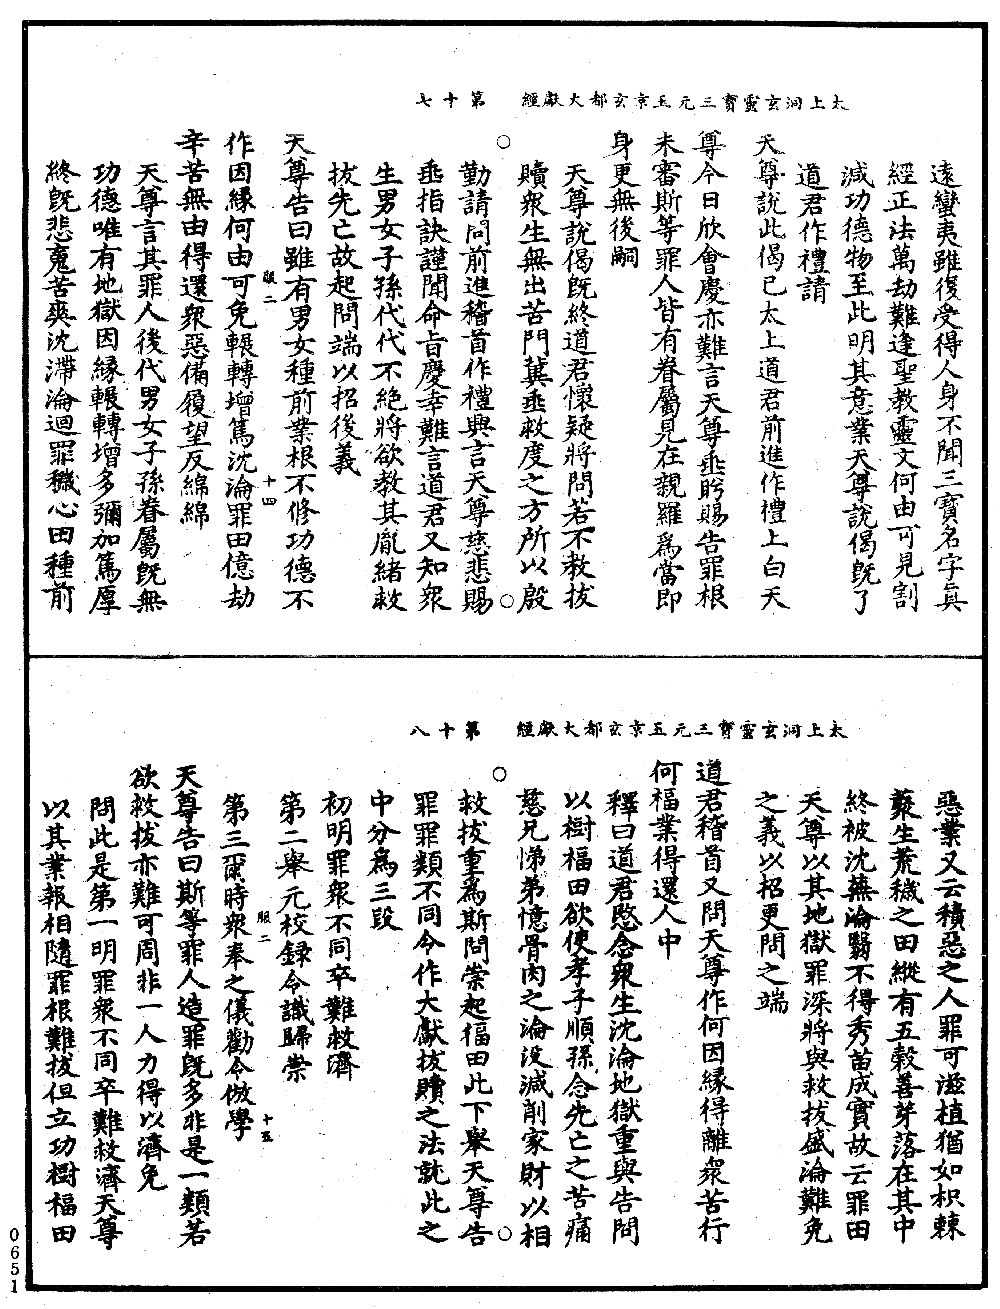 太上洞玄靈寶三元玉京玄都大獻經　第十七
遠蠻夷雖復受得人身不聞三寶名字真
經正法萬劫難逢聖教靈文何由可見割
減功德物至此明其意業天尊說偈旣了
道君作禮請
天尊說此偈已太上道君前進作禮上白天
尊今日欣會慶亦難言天尊垂眄賜告罪根
未審斯等罪人皆有眷屬見在親羅為當即
身更無後嗣
天尊說偈旣終道君懷疑將問若不救拔
贖衆生無出苦門冀垂救度之方所以殷
勤請問前進稽首作禮興言天尊慈悲賜
垂指訣謹聞命旨慶幸難言道君又知衆
生男女子孫代代不絕將欲教其胤緒救
拔先亡故起問端以招後義
天尊告曰雖有男女種前業根不修功德不
作因緣何由可免輾轉增篤沈淪罪田億劫
服二　十四
辛苦無由得還衆惡備履望反綿綿
天尊言其罪人後代男女子孫眷屬旣無
功德唯有地獄因緣輾轉增多彌加篤厚
終旣悲冤苦爽沈滯淪迴罪穢心田種前
太上洞玄靈寶三元玉京玄都大獻經　第十八
惡業又云積惡之人罪可滋植猶如枳棘
蘩生荒穢之田縱有五穀善芽落在其中
終被沈蕪淪翳不得秀苗成實故云罪田
天尊以其地獄罪深將與救拔盛淪難免
之義以招更問之端
道君稽首又問天尊作何因緣得離衆苦行
何福業得還人中
釋曰道君愍念衆生沈淪地獄重與告問
以樹福田欲使孝子順孫念先亡之苦痛
慈兄悌弟憶骨肉之淪没減削家財以相
救拔重為斯問崇起福田此下舉天尊告
罪罪類不同今作大獻拔贖之法就此之
中分為三段
初明罪衆不同卒難救濟
第二舉元校錄令識歸崇
服二　十五
第三爾時衆奉之儀勸令倣學
天尊告曰斯等罪人造罪旣多非是一類若
欲救拔亦難可周非一人力得以濟免
問此是第一明罪衆不同卒難救濟天尊
以其業報相隨罪根難拔但立功樹福田
0651